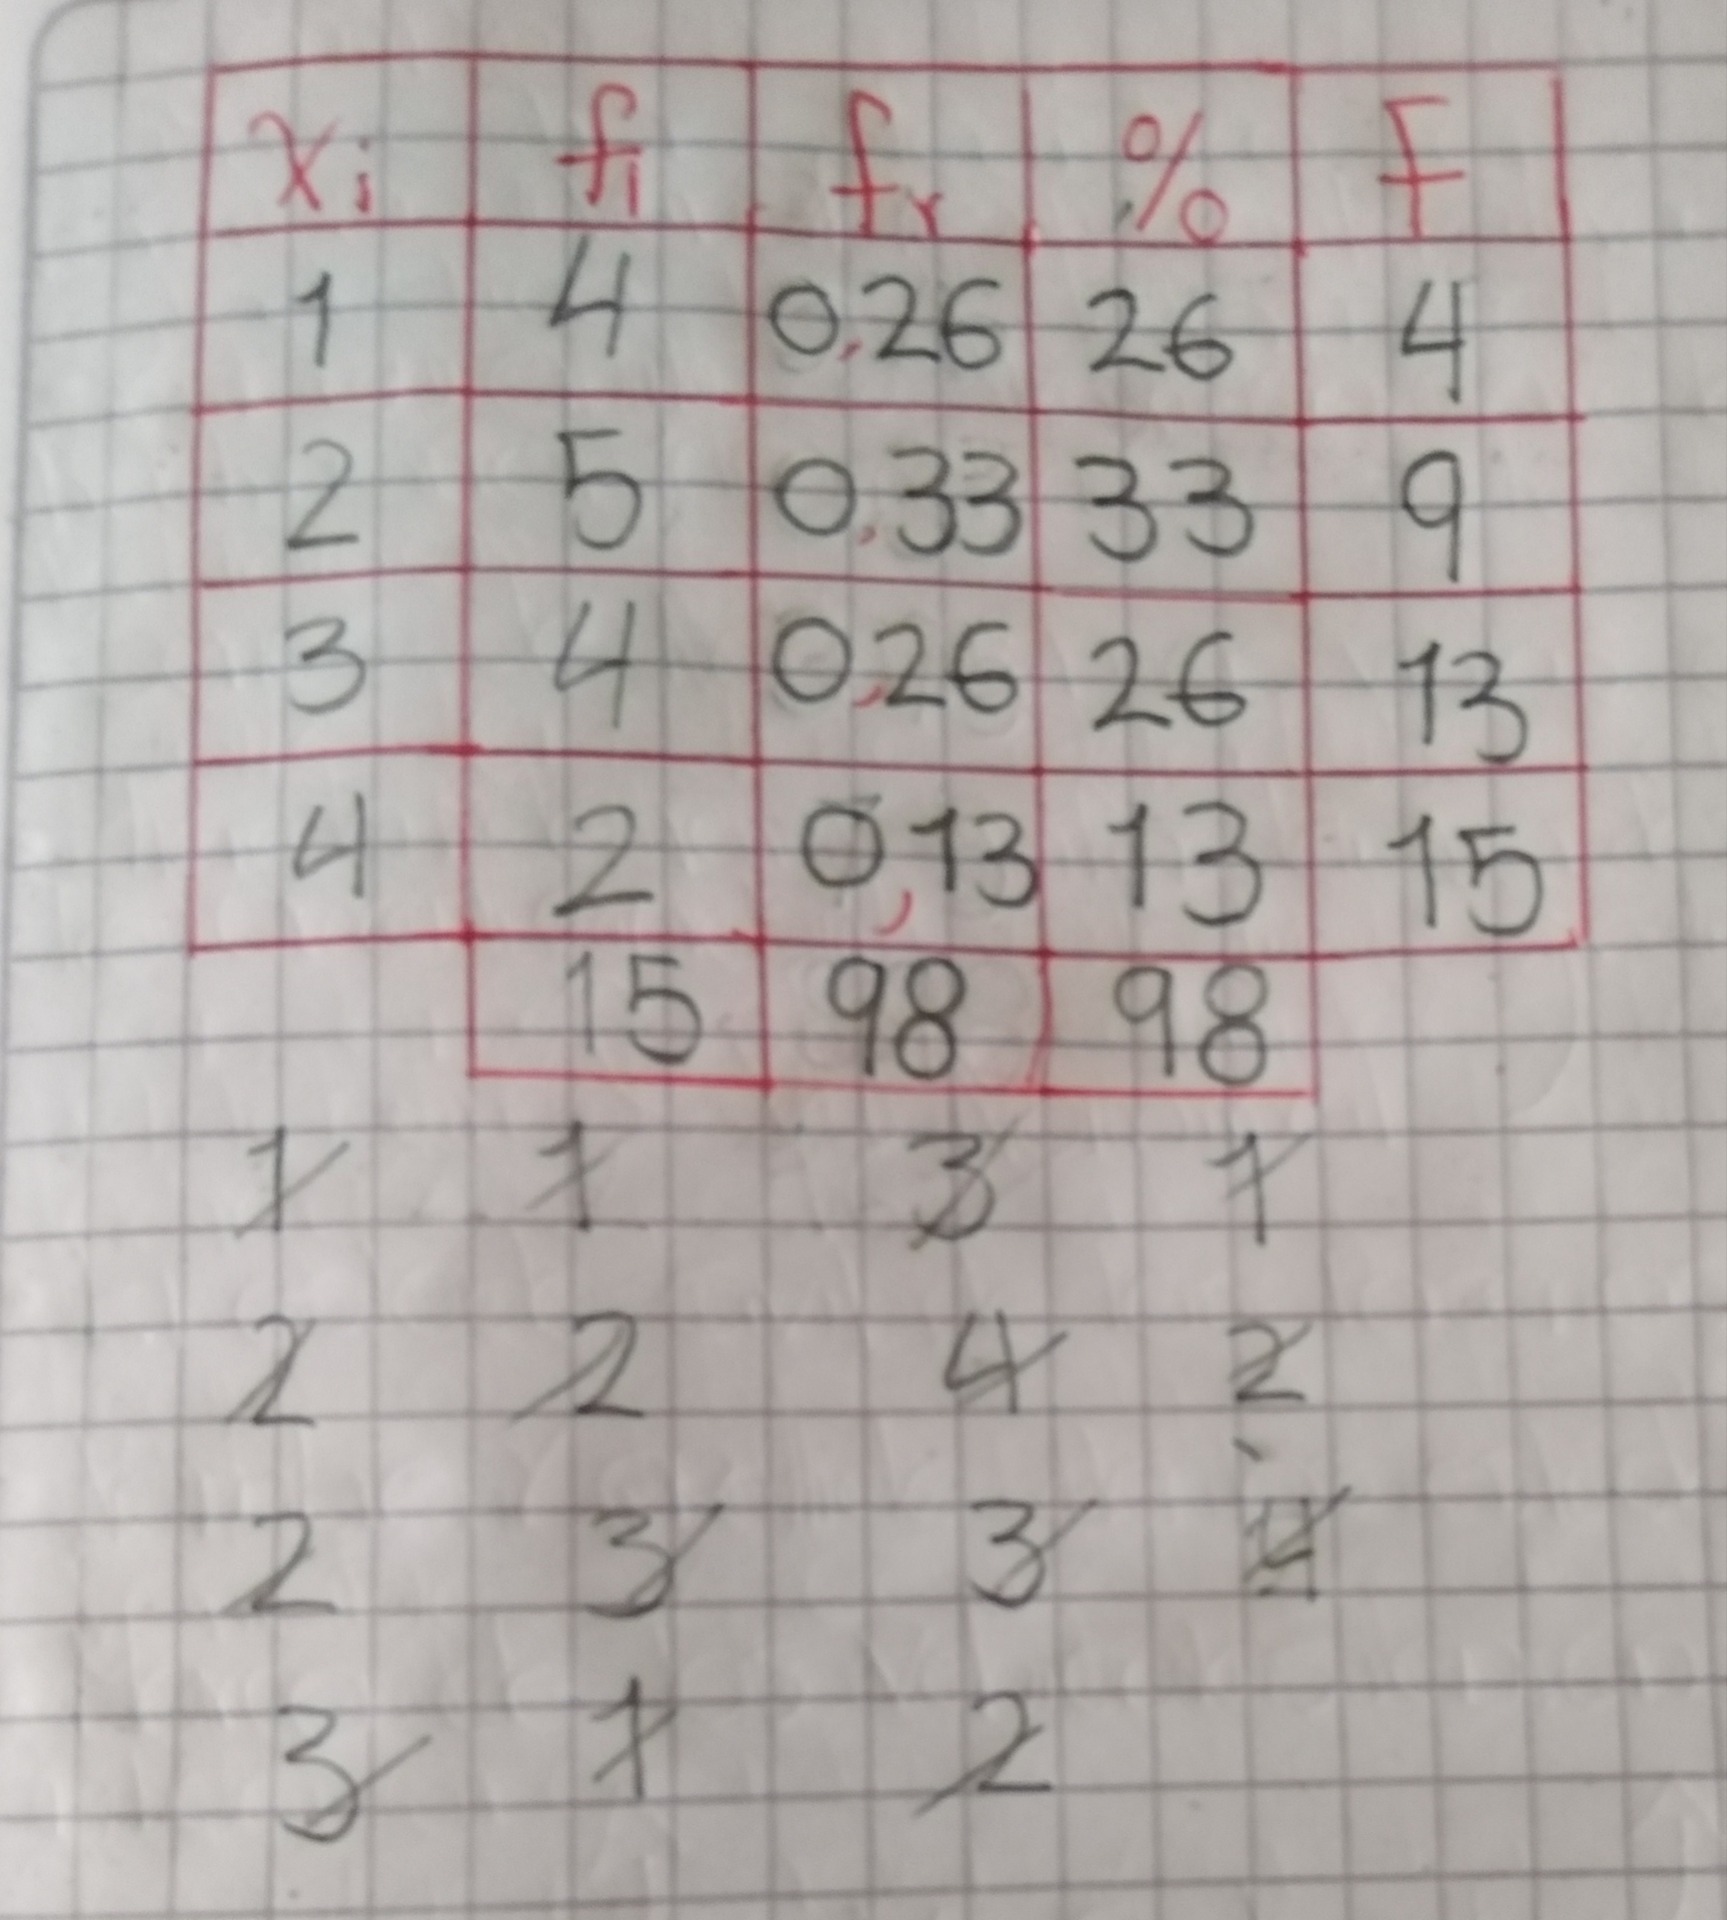 Xi fi fr % F
1 4 0,26 26 4
2 5 0,33 33 9
3 4 0,26 26 13
4 2 0,13 13 15
15 98 98
1 1 3 1
2 2 4 2
2 3 3
3 1 2